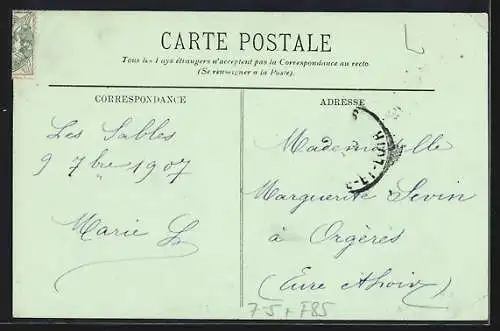 CARTE POSTALE
Tous les Pays étrangers n'acceptent pas la Correspondance au recto
(Se renseigner à la Poste).
CORRESPONDANCE
Les Sables
9 7bre 1907
Marie L
ADRESSE
Mademoiselle
Marguerite Sevin
à Orgères
(Eure & Loir)
75 + F85